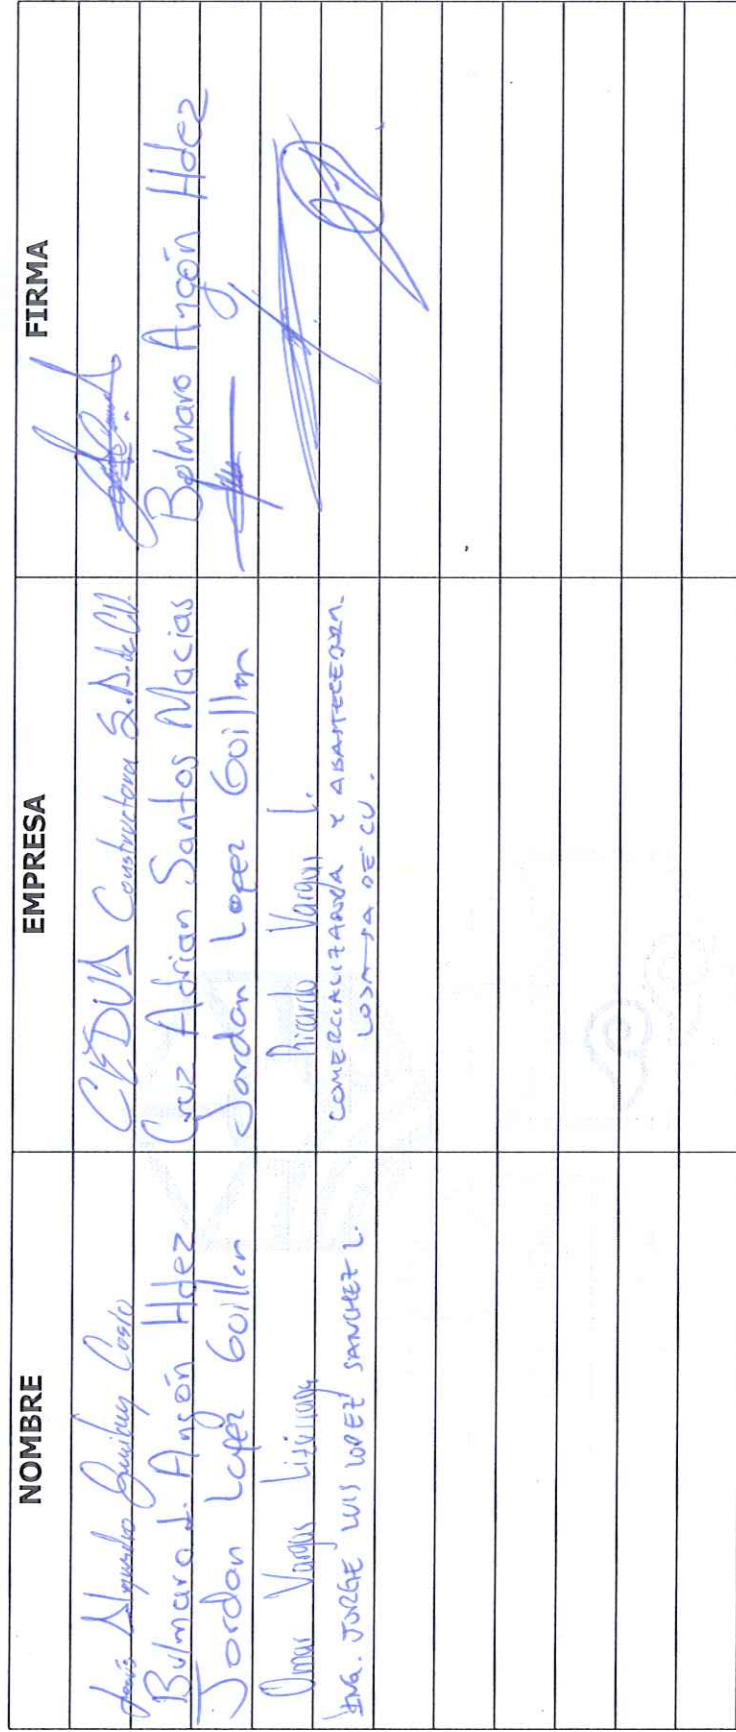 NOMBRE EMPRESA FIRMA
Alejandro CEDUA Constructora S.A. de C.V.
Bulmaro J. Angón Hdez Cruz Adrian Santos Macias Bolmaro Angón Hdez
Jordan Lopez Guillen Jordan Lopez Guillen
Omar Vargas Ricardo Vargas L.
ING. JORGE LUIS LOPEZ SANCHEZ L. COMERCIALIZADORA Y ABASTECEDORA
SA DE CV.